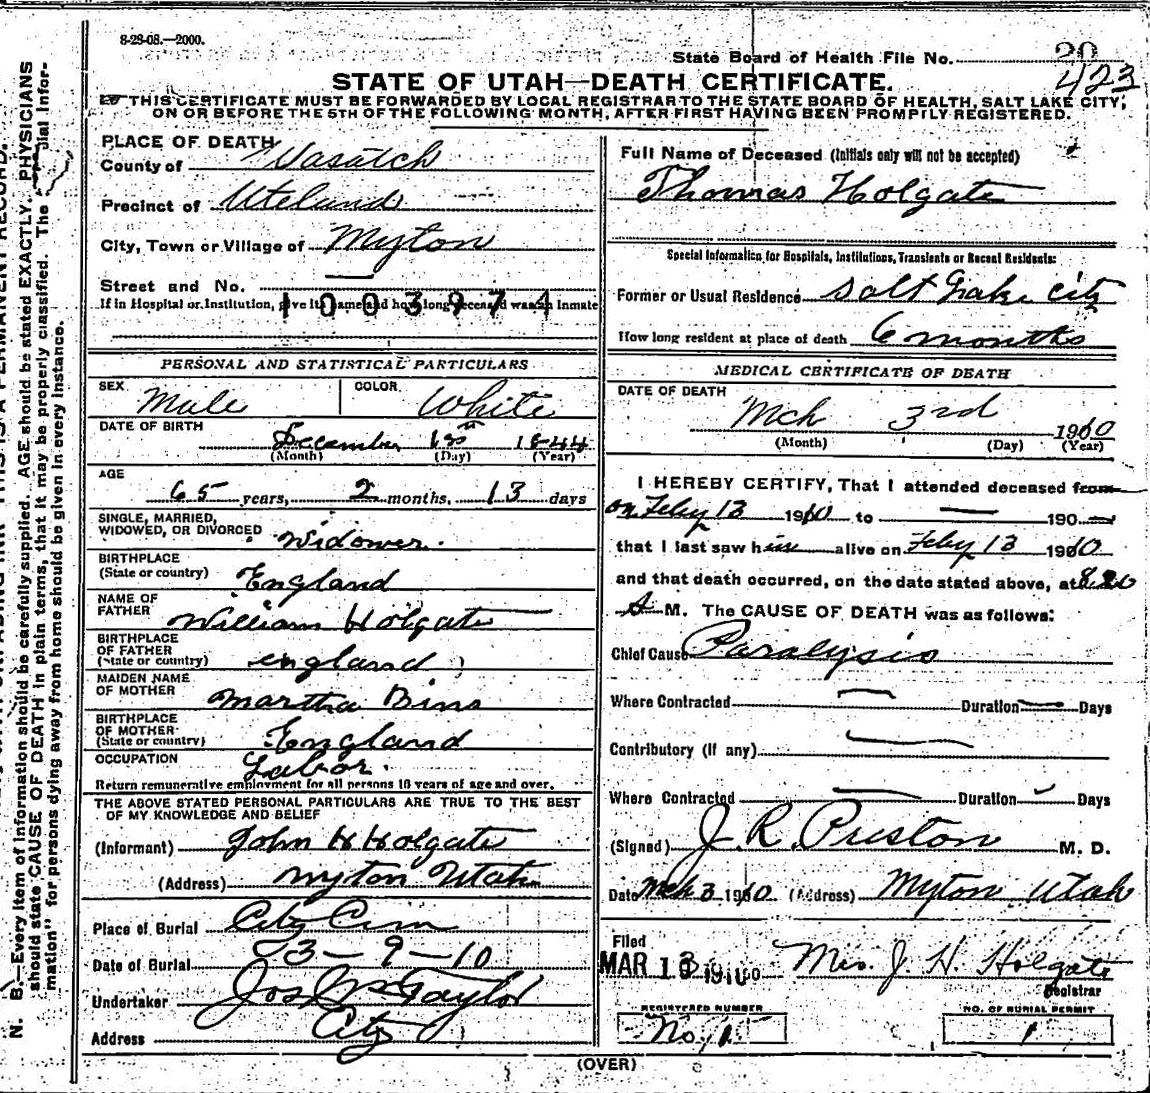 8-28-08.—2000.
State Board of Health File No. 20
423
STATE OF UTAH—DEATH CERTIFICATE.
THIS CERTIFICATE MUST BE FORWARDED BY LOCAL REGISTRAR TO THE STATE BOARD OF HEALTH, SALT LAKE CITY,
ON OR BEFORE THE 5TH OF THE FOLLOWING MONTH, AFTER FIRST HAVING BEEN PROMPTLY REGISTERED.
N. B.—Every item of information should be carefully supplied. AGE should be stated EXACTLY. PHYSICIANS
should state CAUSE OF DEATH in plain terms, that it may be properly classified. The "
mation" for persons dying away from home should be given in every instance.
PLACE OF DEATH
County of Wasatch
Precinct of Uteland
City, Town or Village of Myton
Street and No. —
1003974
If in Hospital or Institution, give its name and how long deceased was an inmate
PERSONAL AND STATISTICAL PARTICULARS
SEX Male COLOR White
DATE OF BIRTH December 1844
(Month) (Day) (Year)
AGE
65 years, 2 months, 13 days
SINGLE, MARRIED,
WIDOWED, OR DIVORCED Widower.
BIRTHPLACE
(State or country) England
NAME OF
FATHER William Holgate
BIRTHPLACE
OF FATHER
(State or country) England
MAIDEN NAME
OF MOTHER Martha Bins
BIRTHPLACE
OF MOTHER
(State or country) England
OCCUPATION Labor.
Return remunerative employment for all persons 10 years of age and over.
THE ABOVE STATED PERSONAL PARTICULARS ARE TRUE TO THE BEST
OF MY KNOWLEDGE AND BELIEF
(Informant) John H Holgate
(Address) Myton Utah
Place of Burial City Cem
Date of Burial 3—9—10
Undertaker Jos Wm Taylor
Address City
Full Name of Deceased (Initials only will not be accepted)
Thomas Holgate
Special Information for Hospitals, Institutions, Transients or Recent Residents:
Former or Usual Residence Salt Lake City
How long resident at place of death 6 months
MEDICAL CERTIFICATE OF DEATH
DATE OF DEATH
Mch 3rd 1910
(Month) (Day) (Year)
I HEREBY CERTIFY, That I attended deceased from
on Feby 13 1910 to — 190—
that I last saw him alive on Feby 13 1910
and that death occurred, on the date stated above, at 8.20
A M. The CAUSE OF DEATH was as follows:
Chief Cause Paralysis
Where Contracted — Duration — Days
Contributory (if any) —
Where Contracted — Duration Days
(Signed) J. R. Preston M. D.
Date Mch 3 1910 (Address) Myton Utah
Filed
MAR 1910 Mrs. J. H. Holgate
Registrar
REGISTERED NUMBER NO. OF BURIAL PERMIT
No. 1. 1
(OVER)